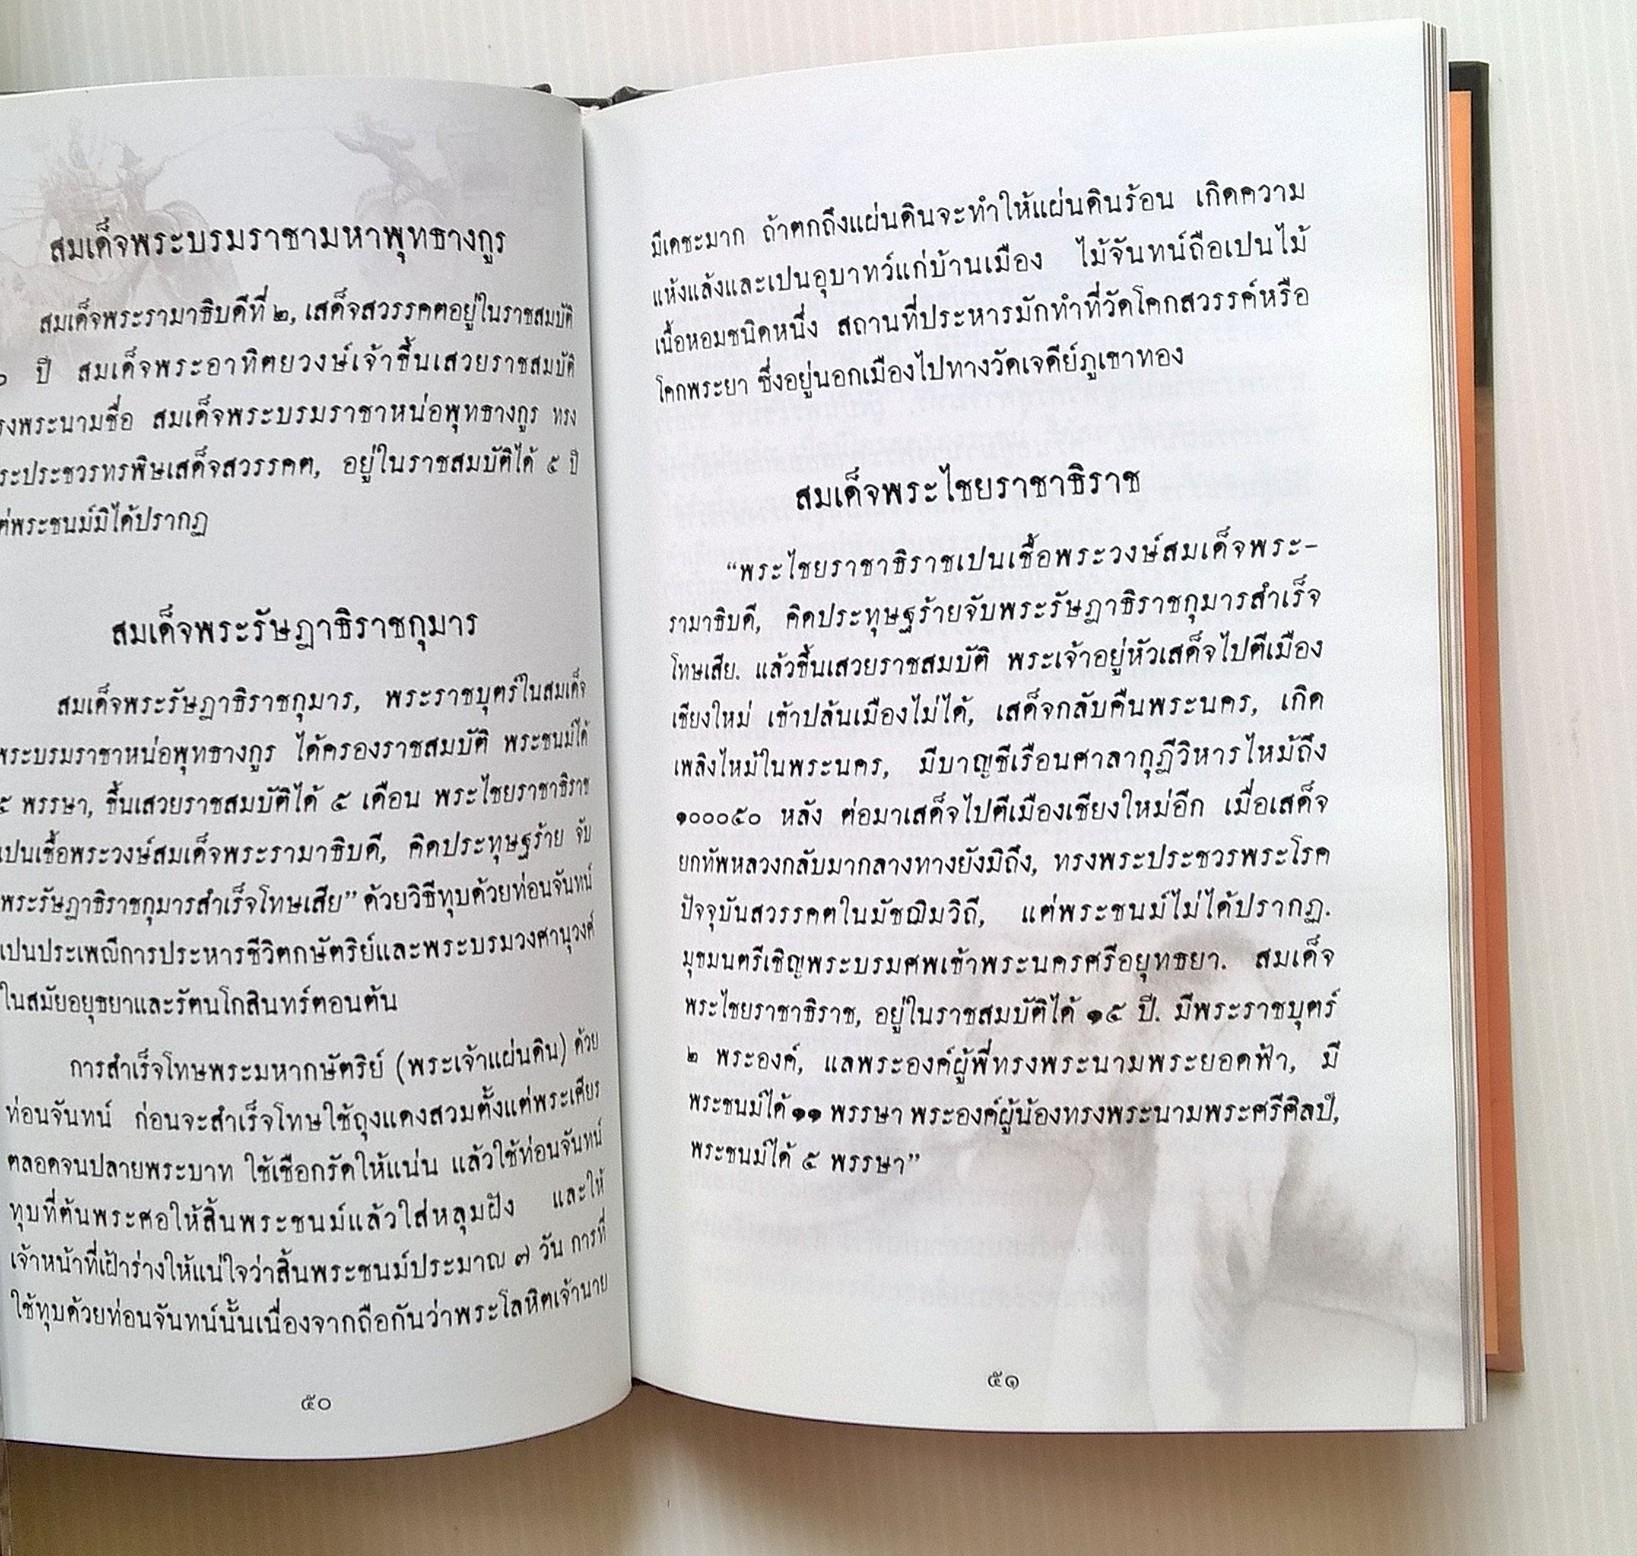 สมเด็จพระบรมราชามหาพุทธางกูร
สมเด็จพระรามาธิบดีที่ ๒, เสด็จสวรรคตอยู่ในราชสมบัติ
ปี สมเด็จพระอาทิตยวงษ์เจ้าขึ้นเสวยราชสมบัติ
พระนามชื่อ สมเด็จพระบรมราชาหน่อพุทธางกูร ทรง
ประชวรทรพิษเสด็จสวรรคต, อยู่ในราชสมบัติได้ ๕ ปี
พระชนม์มิได้ปรากฏ
สมเด็จพระรัษฎาธิราชกุมาร
สมเด็จพระรัษฎาธิราชกุมาร, พระราชบุตร์ในสมเด็จ
พระบรมราชาหน่อพุทธางกูร ได้ครองราชสมบัติ พระชนม์ได้
๕ พรรษา, ขึ้นเสวยราชสมบัติได้ ๕ เดือน พระไชยราชาธิราช
เปนเชื้อพระวงษ์สมเด็จพระรามาธิบดี, คิดประทุษฐร้าย จับ
พระรัษฎาธิราชกุมารสำเร็จโทษเสีย” ด้วยวิธีทุบด้วยท่อนจันทน์
เปนประเพณีการประหารชีวิตกษัตริย์และพระบรมวงศานุวงศ์
ในสมัยอยุธยาและรัตนโกสินทร์ตอนต้น
การสำเร็จโทษพระมหากษัตริย์ (พระเจ้าแผ่นดิน) ด้วย
ท่อนจันทน์ ก่อนจะสำเร็จโทษใช้ถุงแดงสวมตั้งแต่พระเศียร
ตลอดจนปลายพระบาท ใช้เชือกรัดให้แน่น แล้วใช้ท่อนจันทน์
ทุบที่ต้นพระศอให้สิ้นพระชนม์แล้วใส่หลุมฝัง และให้
เจ้าหน้าที่เฝ้าร่างให้แน่ใจว่าสิ้นพระชนม์ประมาณ ๗ วัน การที่
ใช้ทุบด้วยท่อนจันทน์นั้นเนื่องจากถือกันว่าพระโลหิตเจ้านาย
๕๐
มีเดชะมาก ถ้าตกถึงแผ่นดินจะทำให้แผ่นดินร้อน เกิดความ
แห้งแล้งและเปนอุบาทว์แก่บ้านเมือง ไม้จันทน์ถือเปนไม้
เนื้อหอมชนิดหนึ่ง สถานที่ประหารมักทำที่วัดโคกสวรรค์หรือ
โคกพระยา ซึ่งอยู่นอกเมืองไปทางวัดเจดีย์ภูเขาทอง
สมเด็จพระไชยราชาธิราช
“พระไชยราชาธิราชเปนเชื้อพระวงษ์สมเด็จพระ-
รามาธิบดี, คิดประทุษฐร้ายจับพระรัษฎาธิราชกุมารสำเร็จ
โทษเสีย. แล้วขึ้นเสวยราชสมบัติ พระเจ้าอยู่หัวเสด็จไปตีเมือง
เชียงใหม่ เข้าปล้นเมืองไม่ได้, เสด็จกลับคืนพระนคร, เกิด
เพลิงไหม้ในพระนคร, มีบาญชีเรือนศาลากุฎีวิหารไหม้ถึง
๑๐๐๐๕๐ หลัง ต่อมาเสด็จไปตีเมืองเชียงใหม่อีก เมื่อเสด็จ
ยกทัพหลวงกลับมากลางทางยังมิถึง, ทรงพระประชวรพระโรค
ปัจจุบันสวรรคตในมัชฌิมวิถี, แต่พระชนม์ไม่ได้ปรากฏ.
มุขมนตรีเชิญพระบรมศพเข้าพระนครศรีอยุทธยา. สมเด็จ
พระไชยราชาธิราช, อยู่ในราชสมบัติได้ ๑๕ ปี. มีพระราชบุตร์
๒ พระองค์, แลพระองค์ผู้พี่ทรงพระนามพระยอดฟ้า, มี
พระชนม์ได้ ๑๑ พรรษา พระองค์ผู้น้องทรงพระนามพระศรีศิลป์,
พระชนม์ได้ ๕ พรรษา”
๕๑